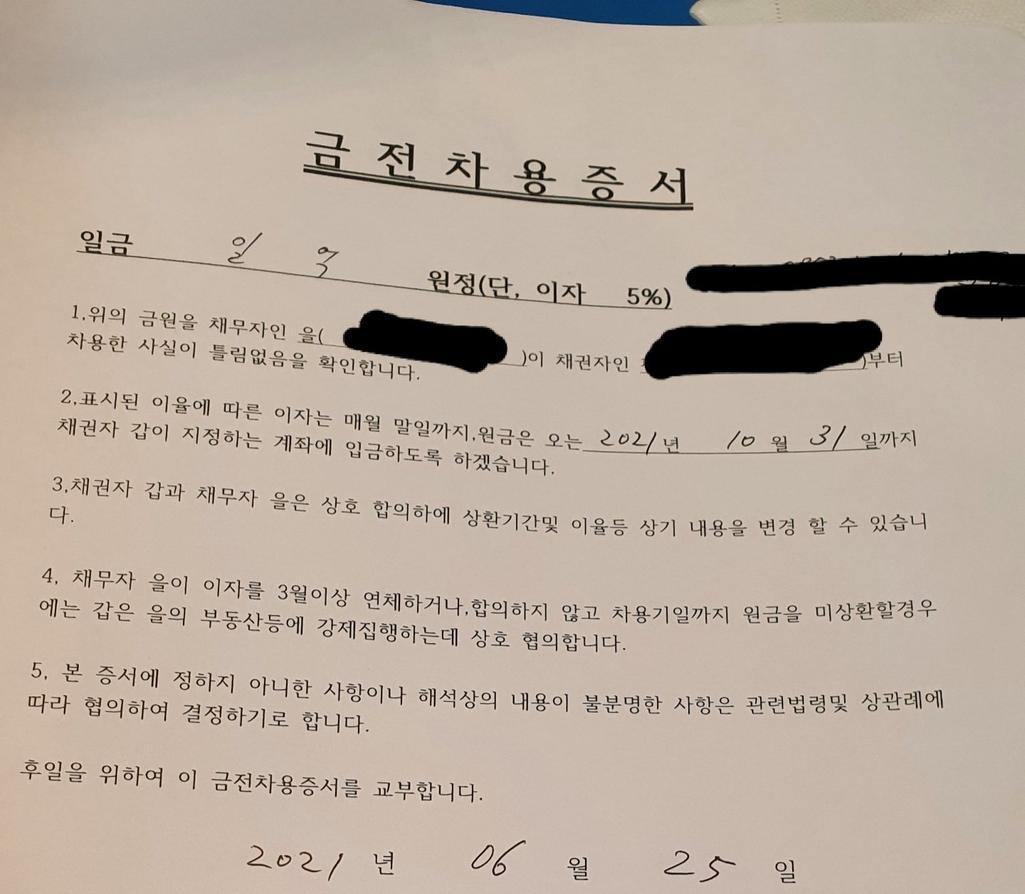 금 전 차 용 증 서
일금 일 억 원정(단, 이자 5%)
1.위의 금원을 채무자인 을( )이 채권자인 )부터
차용한 사실이 틀림없음을 확인합니다.
2.표시된 이율에 따른 이자는 매월 말일까지,원금은 오는 2021년 10월 31일까지
채권자 갑이 지정하는 계좌에 입금하도록 하겠습니다.
3.채권자 갑과 채무자 을은 상호 합의하에 상환기간및 이율등 상기 내용을 변경 할 수 있습니
다.
4, 채무자 을이 이자를 3월이상 연체하거나,합의하지 않고 차용기일까지 원금을 미상환할경우
에는 갑은 을의 부동산등에 강제집행하는데 상호 협의합니다.
5, 본 증서에 정하지 아니한 사항이나 해석상의 내용이 불분명한 사항은 관련법령및 상관례에
따라 협의하여 결정하기로 합니다.
후일을 위하여 이 금전차용증서를 교부합니다.
2021 년 06 월 25 일